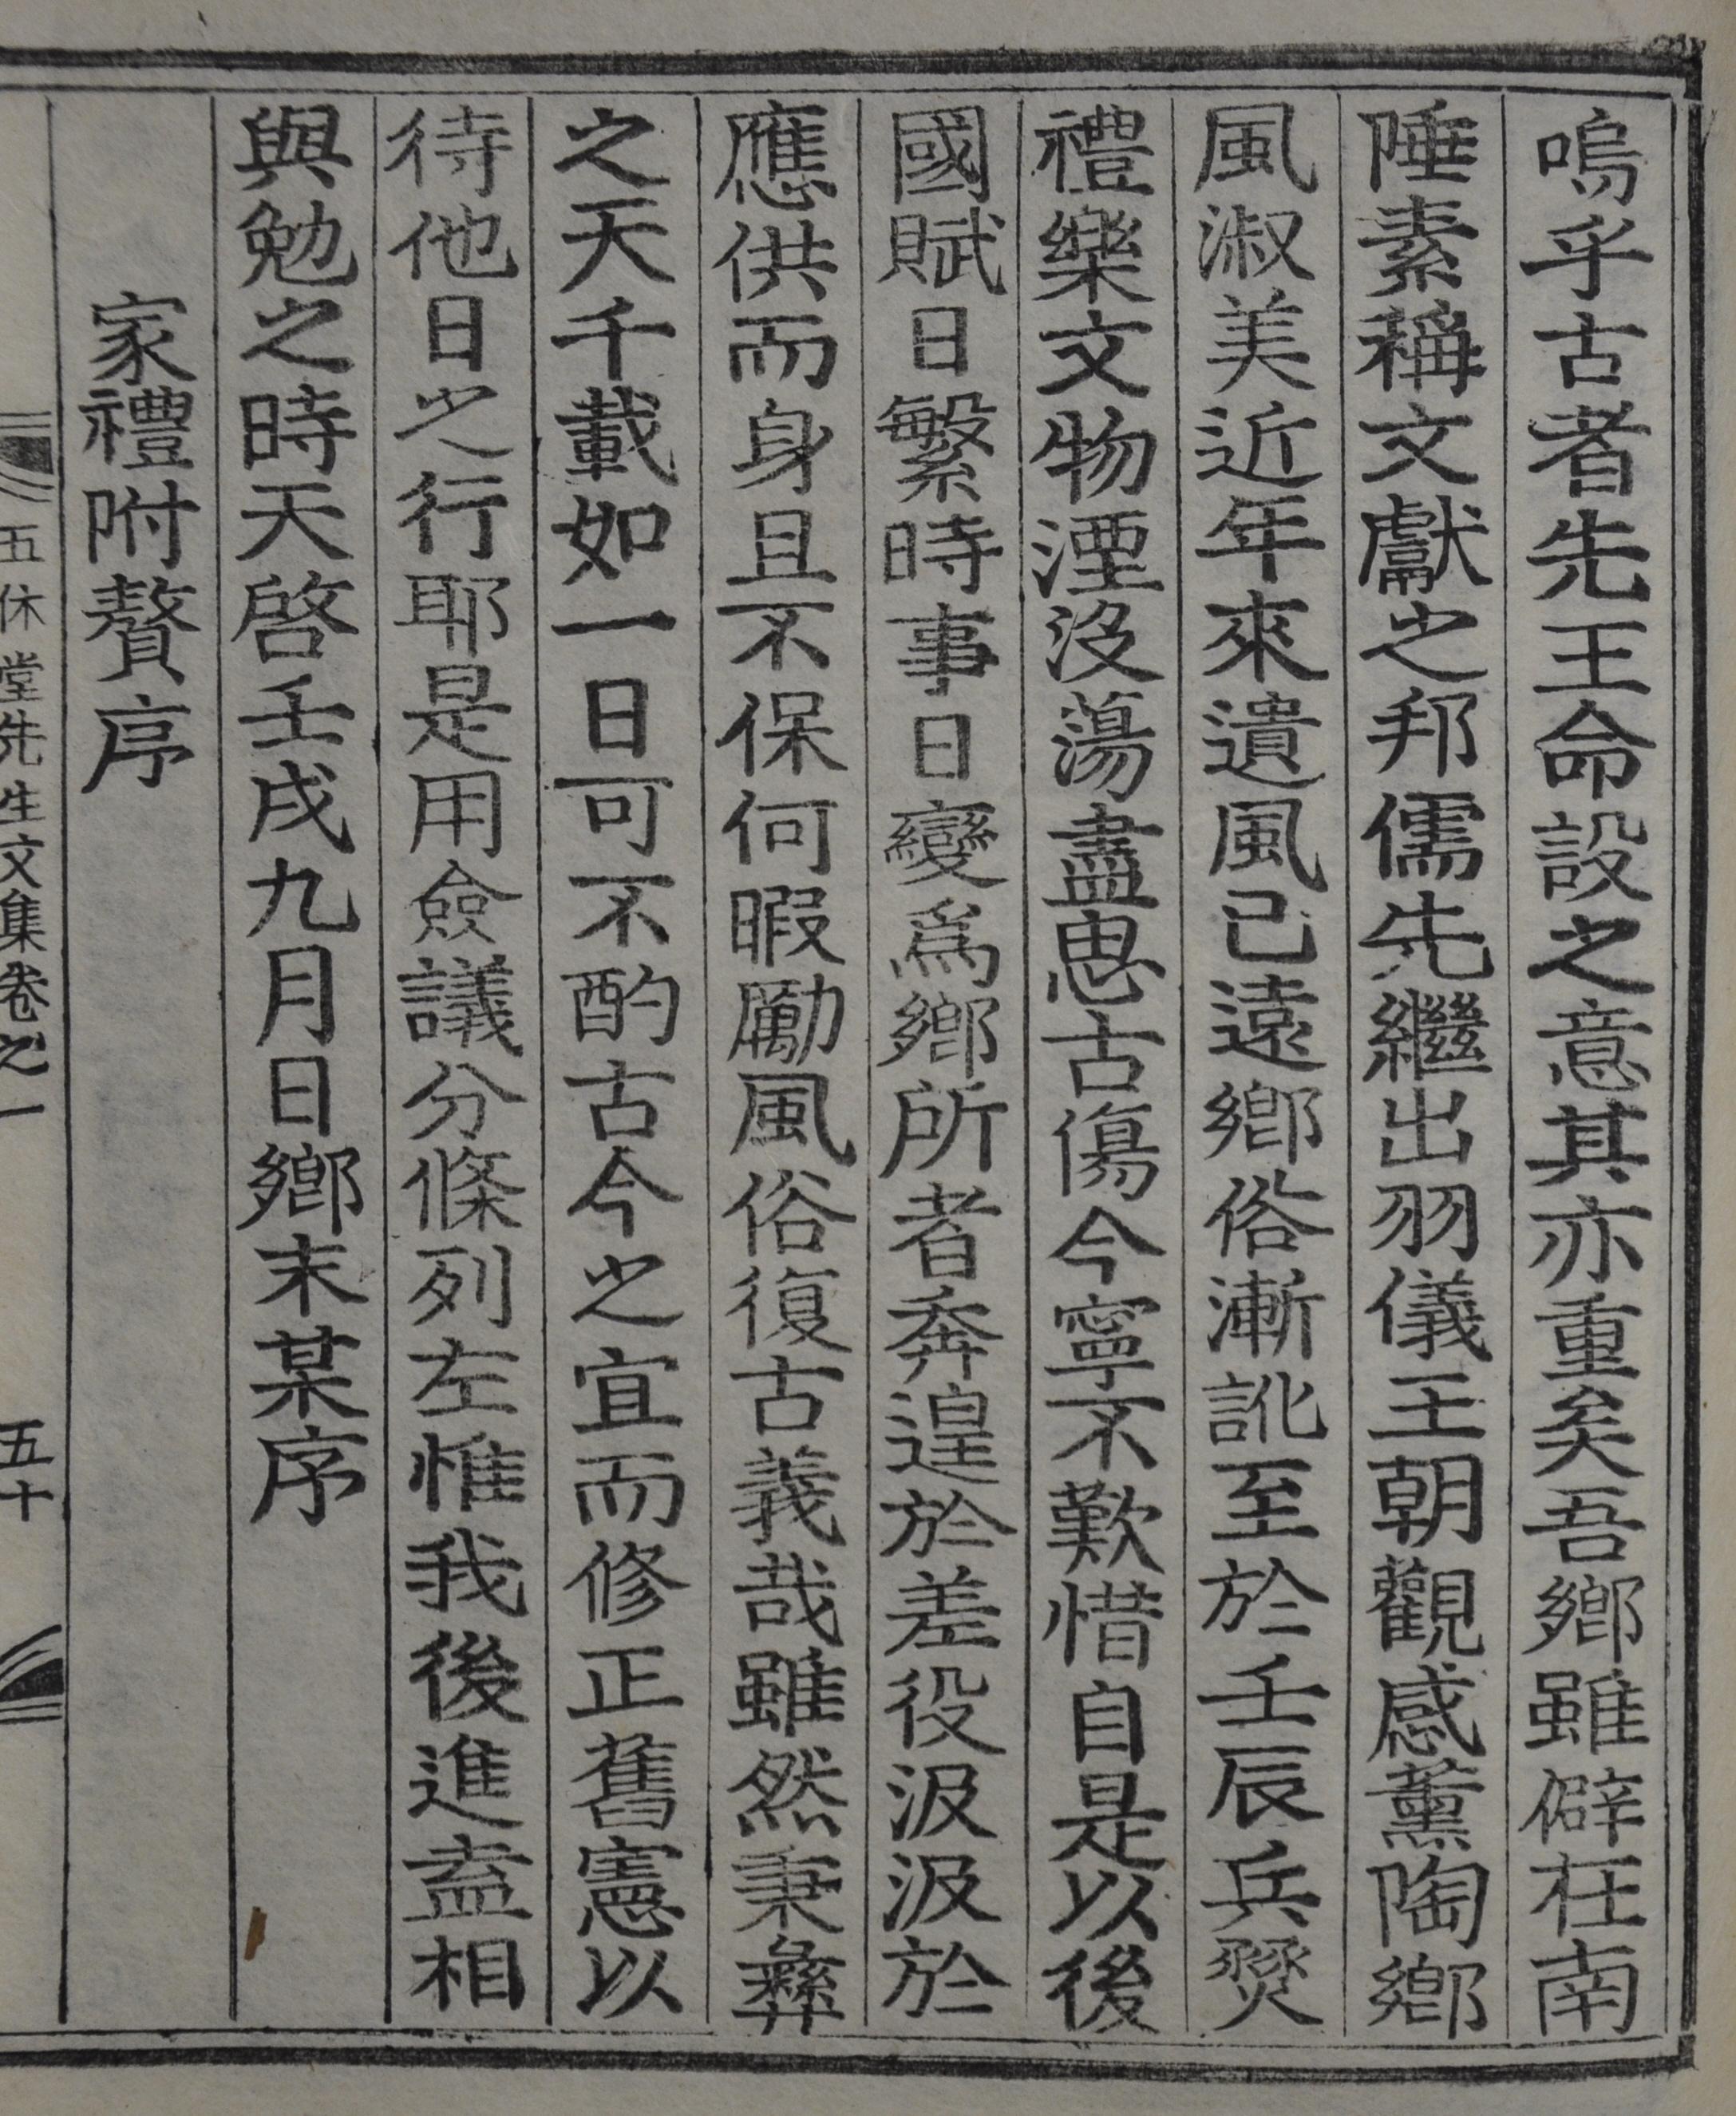 嗚乎古者先王命設之意其亦重矣吾鄉雖僻在南
陲素稱文獻之邦儒先繼出羽儀王朝觀感薰陶鄉
風淑美近年來遺風已遠鄉俗漸訛至於壬辰兵燹
禮樂文物湮沒蕩盡思古傷今寧不歎惜自是以後
國賦日繁時事日變爲鄉所者奔遑於差役汲汲於
應供而身且不保何暇勵風俗復古義哉雖然秉彝
之天千載如一日可不酌古今之宜而修正舊憲以
待他日之行耶是用僉議分條列左惟我後進盍相
與勉之時天啓壬戌九月日鄉末某序
家禮附贅序
五休堂先生文集卷之一 五十